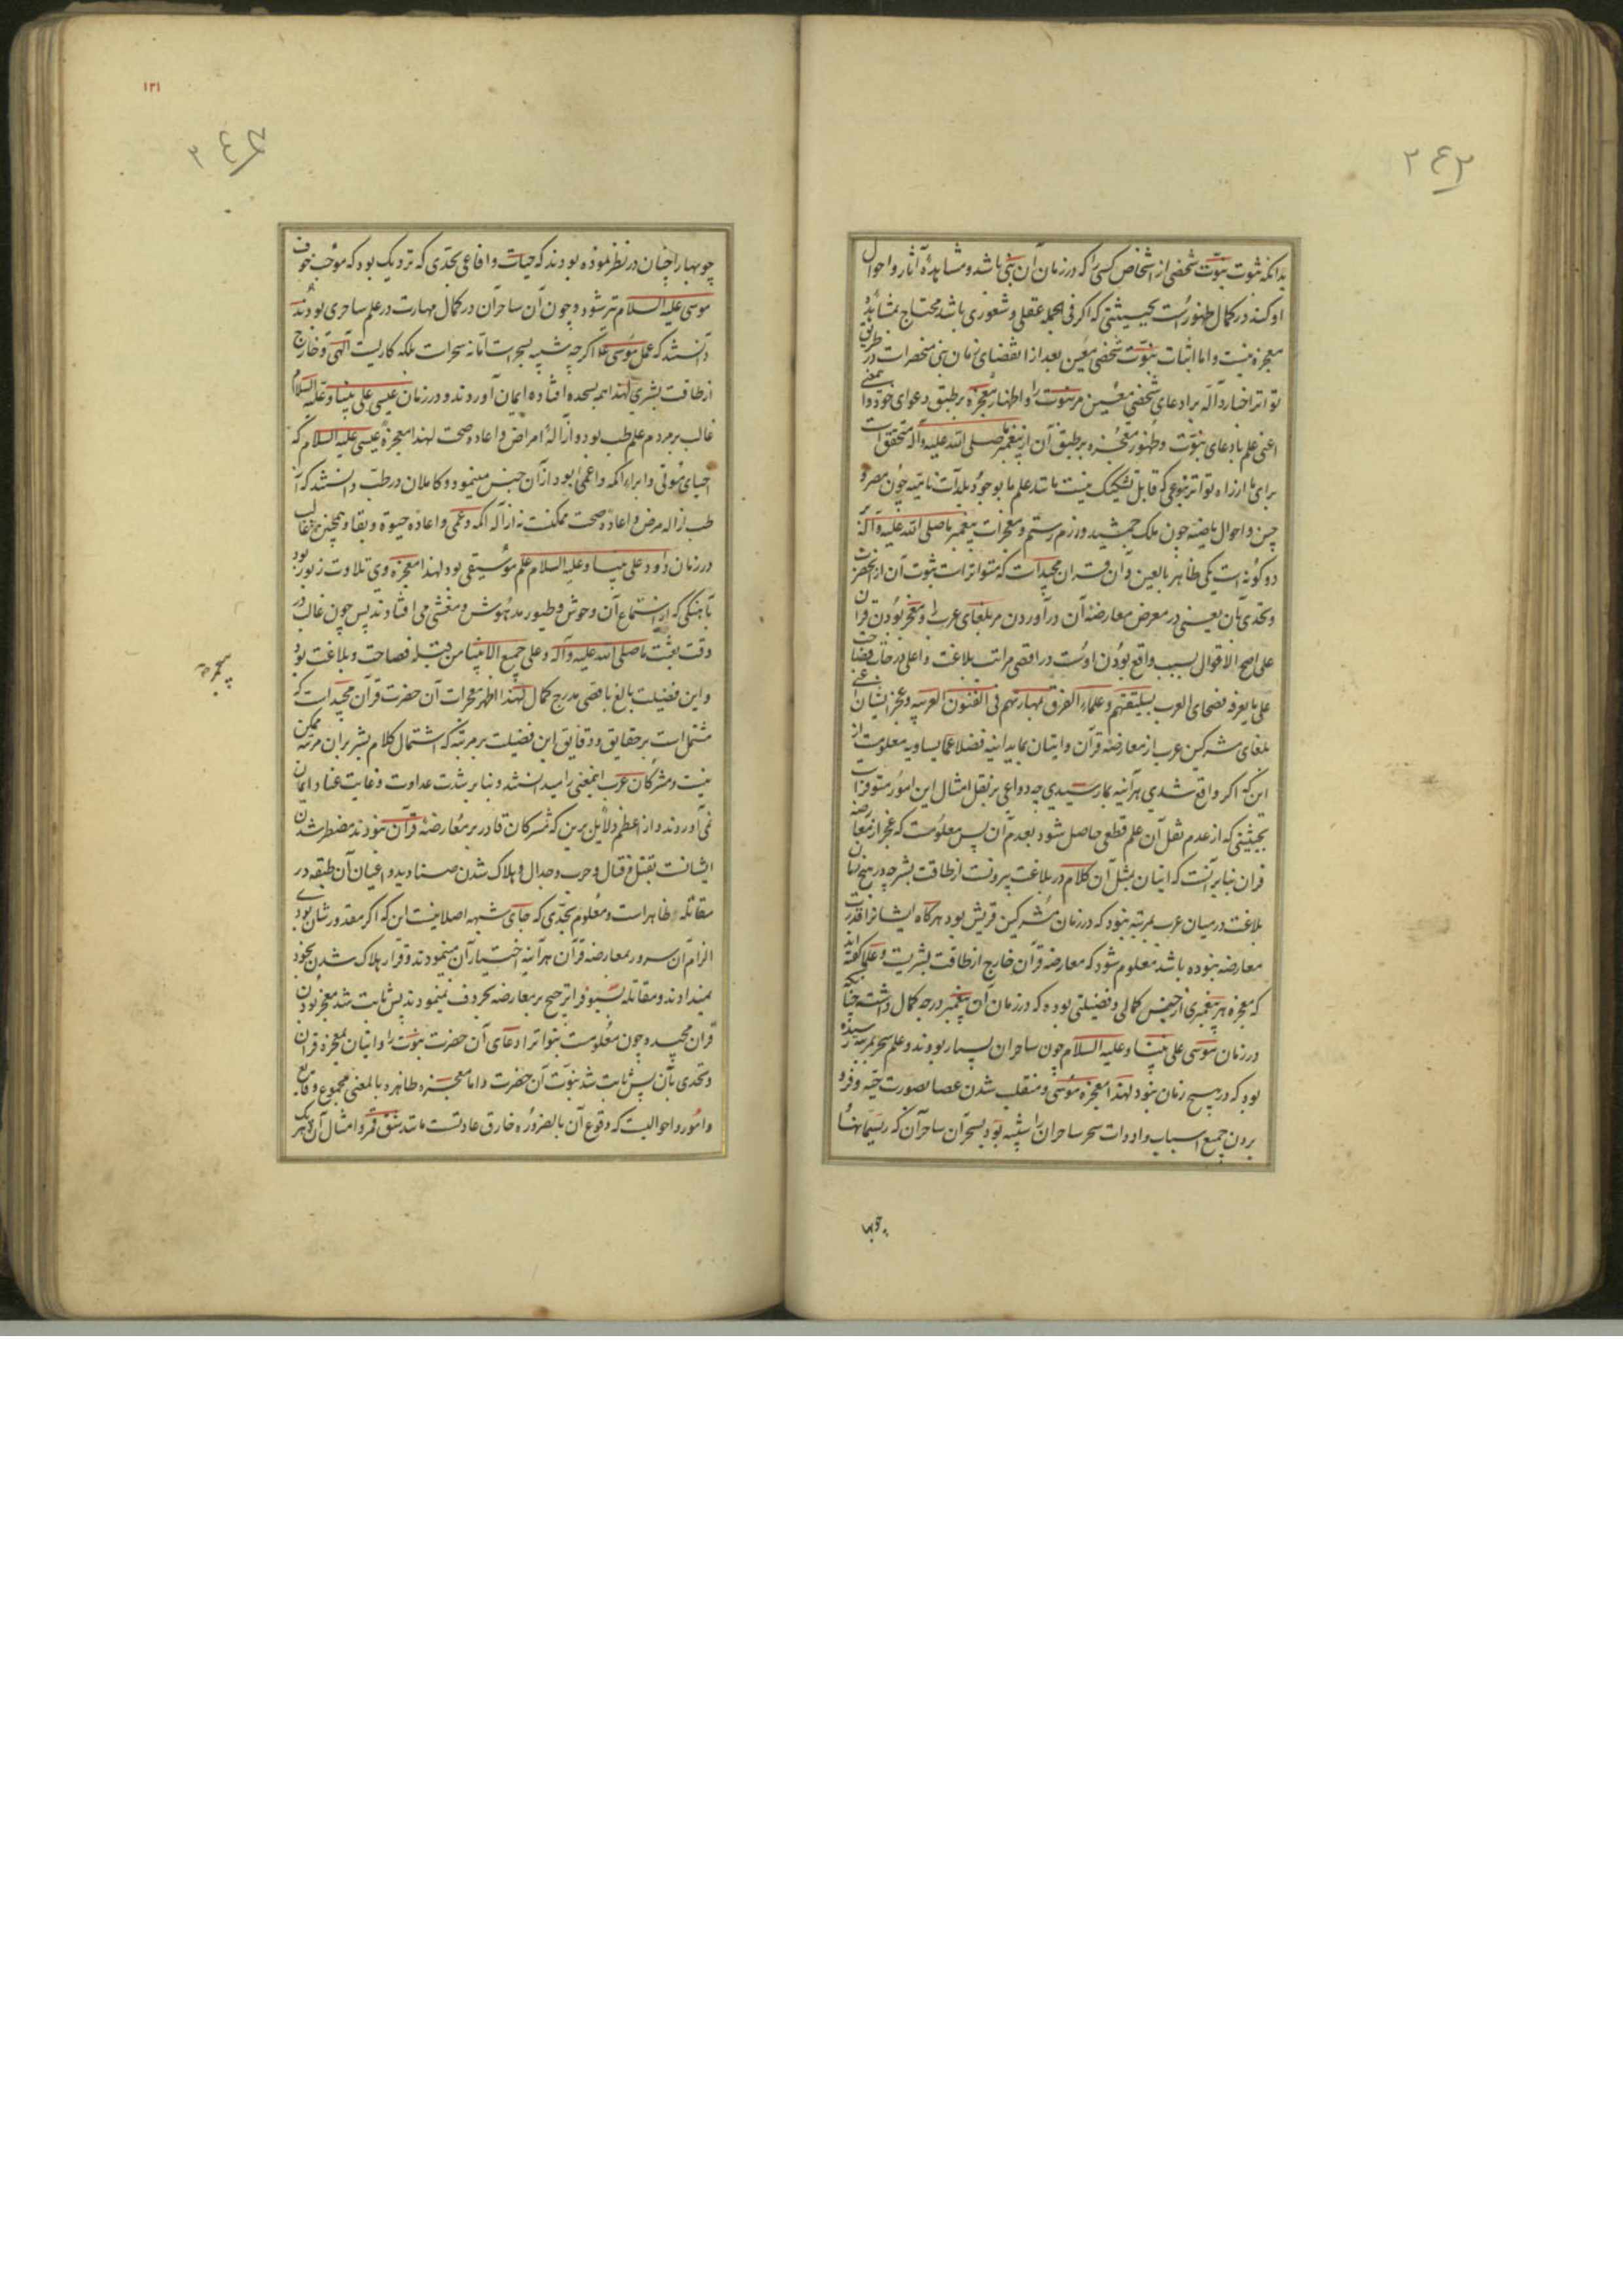 ۲۴۳
بدانکه ثبوت نبوّت شخصی از اشخاص کسی را که در زمان آن نبی باشد و مشاهدهٔ آثار و احوال
او کند در کمال ظهور است بحیثیتی که اگر فی الجمله عقلی و شعوری باشد محتاج بمشاهدهٔ
معجزه نیست و اما اثبات نبوّت شخصی معین بعد از انقضای زمان نبی منحصر است در طریق
تواتر اخبار دآله بر ادعای شخصی معین مر نبوت را و اظهار معجزه بر طبق دعوای خود و
اعنی علم بادعای نبوّت و ظهور معجزه بر طبق آن از پیغمبر ما صلی الله علیه و آله متحقق است
برای ما از راه تواتر بنوعی که قابل تشکیک نیست مانند علم ما بوجود بلدآت نائیه چون مصر و
چین و احوال ماضیه چون ملک جمشید و رزم رستم و معجزات پیغمبر ما صلی الله علیه و آله
دو گونه است یکی ظاهر بالعین و آن قرآن مجید است که متواتر است ثبوت آن از آنحضرت
و تحدی بآن یعنی در معرض معارضهٔ آن در آوردن مر بلغای عرب را و معجز بودن قرآن
علی اصح الاقوال بسبب واقع بودن اوست در اقصی مراتب بلاغت و اعلی درجات فصاحت
علی ما یعرفه فصحای العرب بسلیقتهم و علماء الفرق بمهارتهم فی الفنون العربیه و عجز ایشان
بلغای مشرکین عرب از معارضه قرآن و اتیان بما یدانیه فضلا عما یساویه معلومست از
این که اگر واقع شدی هر آینه بما رسیدی چه دواعی بر نقل امثال این امور متوفر است
بحیثیتی که از عدم نقل آن علم قطعی حاصل شود بعدم آن پس معلومست که عجز از معارضه
قرآن بنابر آنست که اتیان بمثل آن کلام در بلاغت بیرونست از طاقت بشر چه در هیچ زمان
بلاغت در میان عرب بمرتبه نبود که در زمان مشرکین قریش بود هرگاه ایشانرا قدرت
معارضه نبوده باشد معلوم شود که معارضه قرآن خارج از طاقت بشریت و علما گفته‌اند
که معجزه هر پیغمبری از جنس کمالی و فضیلتی بوده که در زمان آن پیغمبر درجه کمال داشته چنانکه
در زمان موسی علی نبینا و علیه السلام چون ساحران بسیار بودند و علم سحر بمرتبه رسیده
بود که در هیچ زمان نبود لهذا معجزه موسی و منقلب شدن عصا بصورت حیّه و فرو
بردن جمیع اسباب و ادوات سحر ساحران را شبیه بود بسحر آن ساحرآن که ریسمانها
چوبها
۱۳۱
۲۴۴
چوبها را چنان در نظر نموده بودند که حیات و افاعی بحدی که نزدیک بود که موجب خوف
موسی علیه السلام نیز شود و چون آن ساحرآن در کمال مهارت در علم ساحری بودند
دانستند که عمل موسی ع اگر چه شبیه بسحر است اما نه سحر است بلکه کاریست الهی و خارج
از طاقت بشری لهذا همه بسجده افتاده ایمان آوردند و در زمان عیسی علی نبینا و علیه السلام
غالب بر مردم علم طب بود و ازالهٔ امراض و اعاده صحت لهذا معجزه عیسی علیه السلام که
احیای موتی و ابراء اکمه و اعمی بود از آن جنس مینمود و کاملان در طب دانستند که از
طب ازاله مرض و اعاده صحت ممکنست نه ازاله اکمه و عمی و اعاده حیوة و بقا و همچنین غالب
در زمان داود علی نبینا و علیه السلام علم موسیقی بود لهذا معجزه وی تلاوت زبور بود
بآهنگی که از استماع آن وحوش و طیور مدهوش و مغشی می افتادند پس چون غالب در
وقت بعثت ما صلی الله علیه و آله و علی جمیع الانبیا من قبله فصاحت و بلاغت بود
و این فضیلت بالغ باقصی مدرج کمال لهذا اظهر معجزات آن حضرت قرآن مجید است که
مشتمل است بر حقایق و دقایق این فضیلت بر مرتبه که اشتمال کلام بشر بران مرتبه ممکن
نیست و مشرکان عرب اینمعنی را میدانستند و بنا بر شدت عداوت و غایت عناد ایمان
نمی‌آوردند و از اعظم دلایل برین که مشرکان قادر بر معارضهٔ قرآن نبودند مضطر شدن
ایشانست بقتل و قتال و حرب و جدال و هلاک شدن صنادید و اعیان آن طبقه در
مقاتله ظاهر است و معلوم بحدّی که جای شبهه اصلا نیست این که اگر مقدور شان بودی
الزام آن سرور بمعارضه قرآن هر آینه اختیار آن مینمودند و قرار هلاک شدن بخود
نمیدادند و مقاتله بسیوف را ترجیح بر معارضه بحروف نمینمودند پس ثابت شد معجز بودن
قرآن مجید و چون معلومست بتواتر ادعای آن حضرت نبوّت را و اتیان بمعجزه قرآن
و تحدی بآن پس ثابت شد نبوّت آن حضرت و اما معجزه ظاهره بالمعنی مجموع وقایع
و امور و احوالیست که وقوع آن بالضروره خارق عادتست مانند شق قمر و امثال آن که هر یک